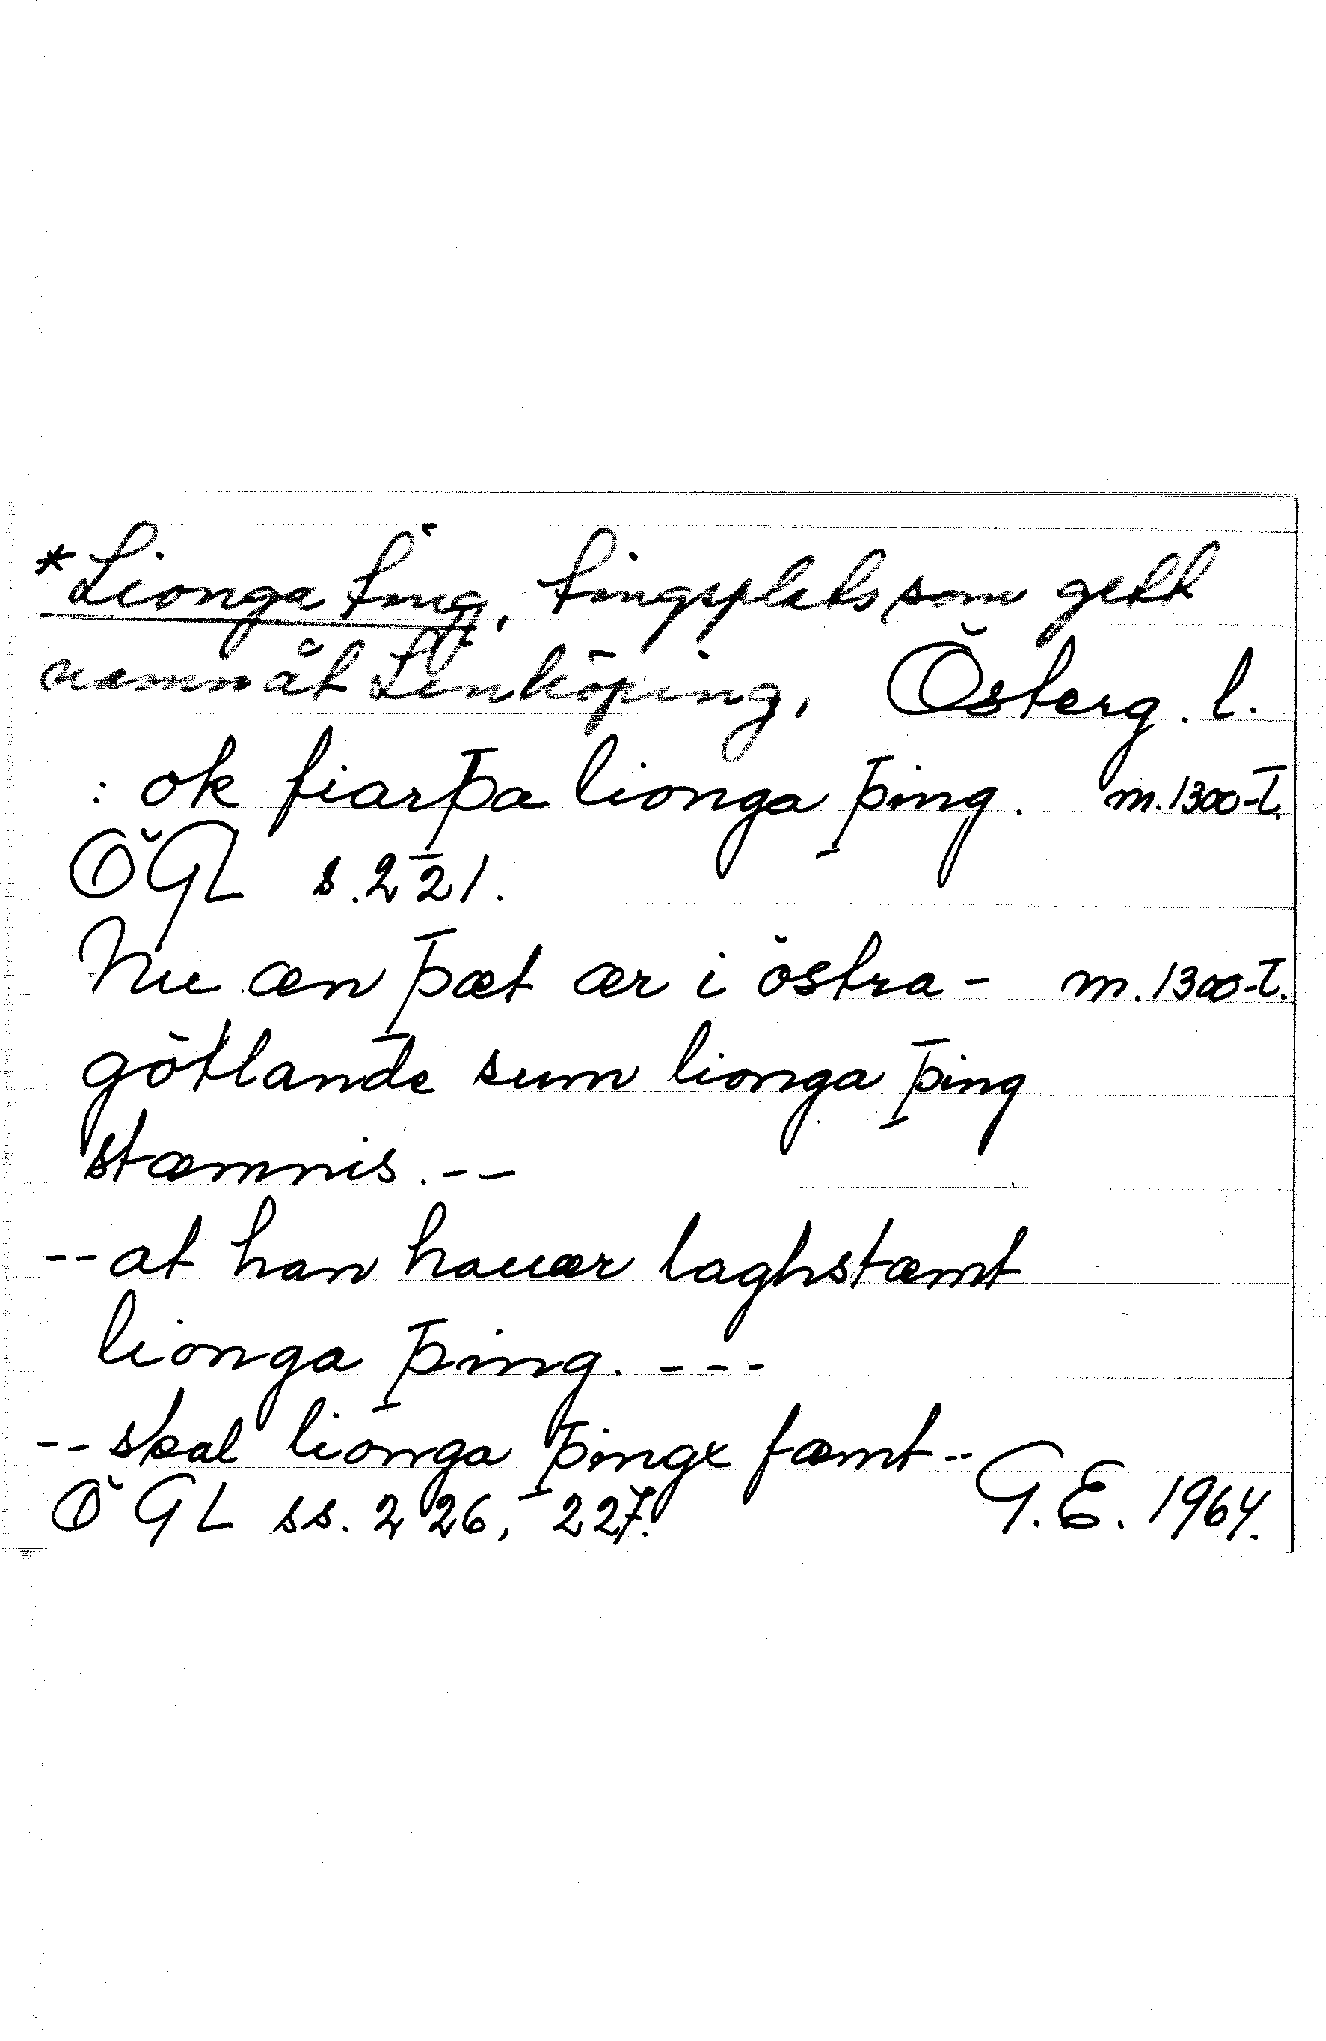 *Lionga ting, tingsplats som gett
namn åt Linköping, Österg. l.
: ok fiarþa lionga þing. m. 1300-t.
ÖGL s. 221.
Nu æn þæt ær i östra- m. 1300-t.
götlande sum lionga þing
stæmnis. --
-- at han hauær laghstæmt
lionga þing. ---
-- skal lionga þingx fæmt --
ÖGL ss. 226, 227. G.E. 1964.